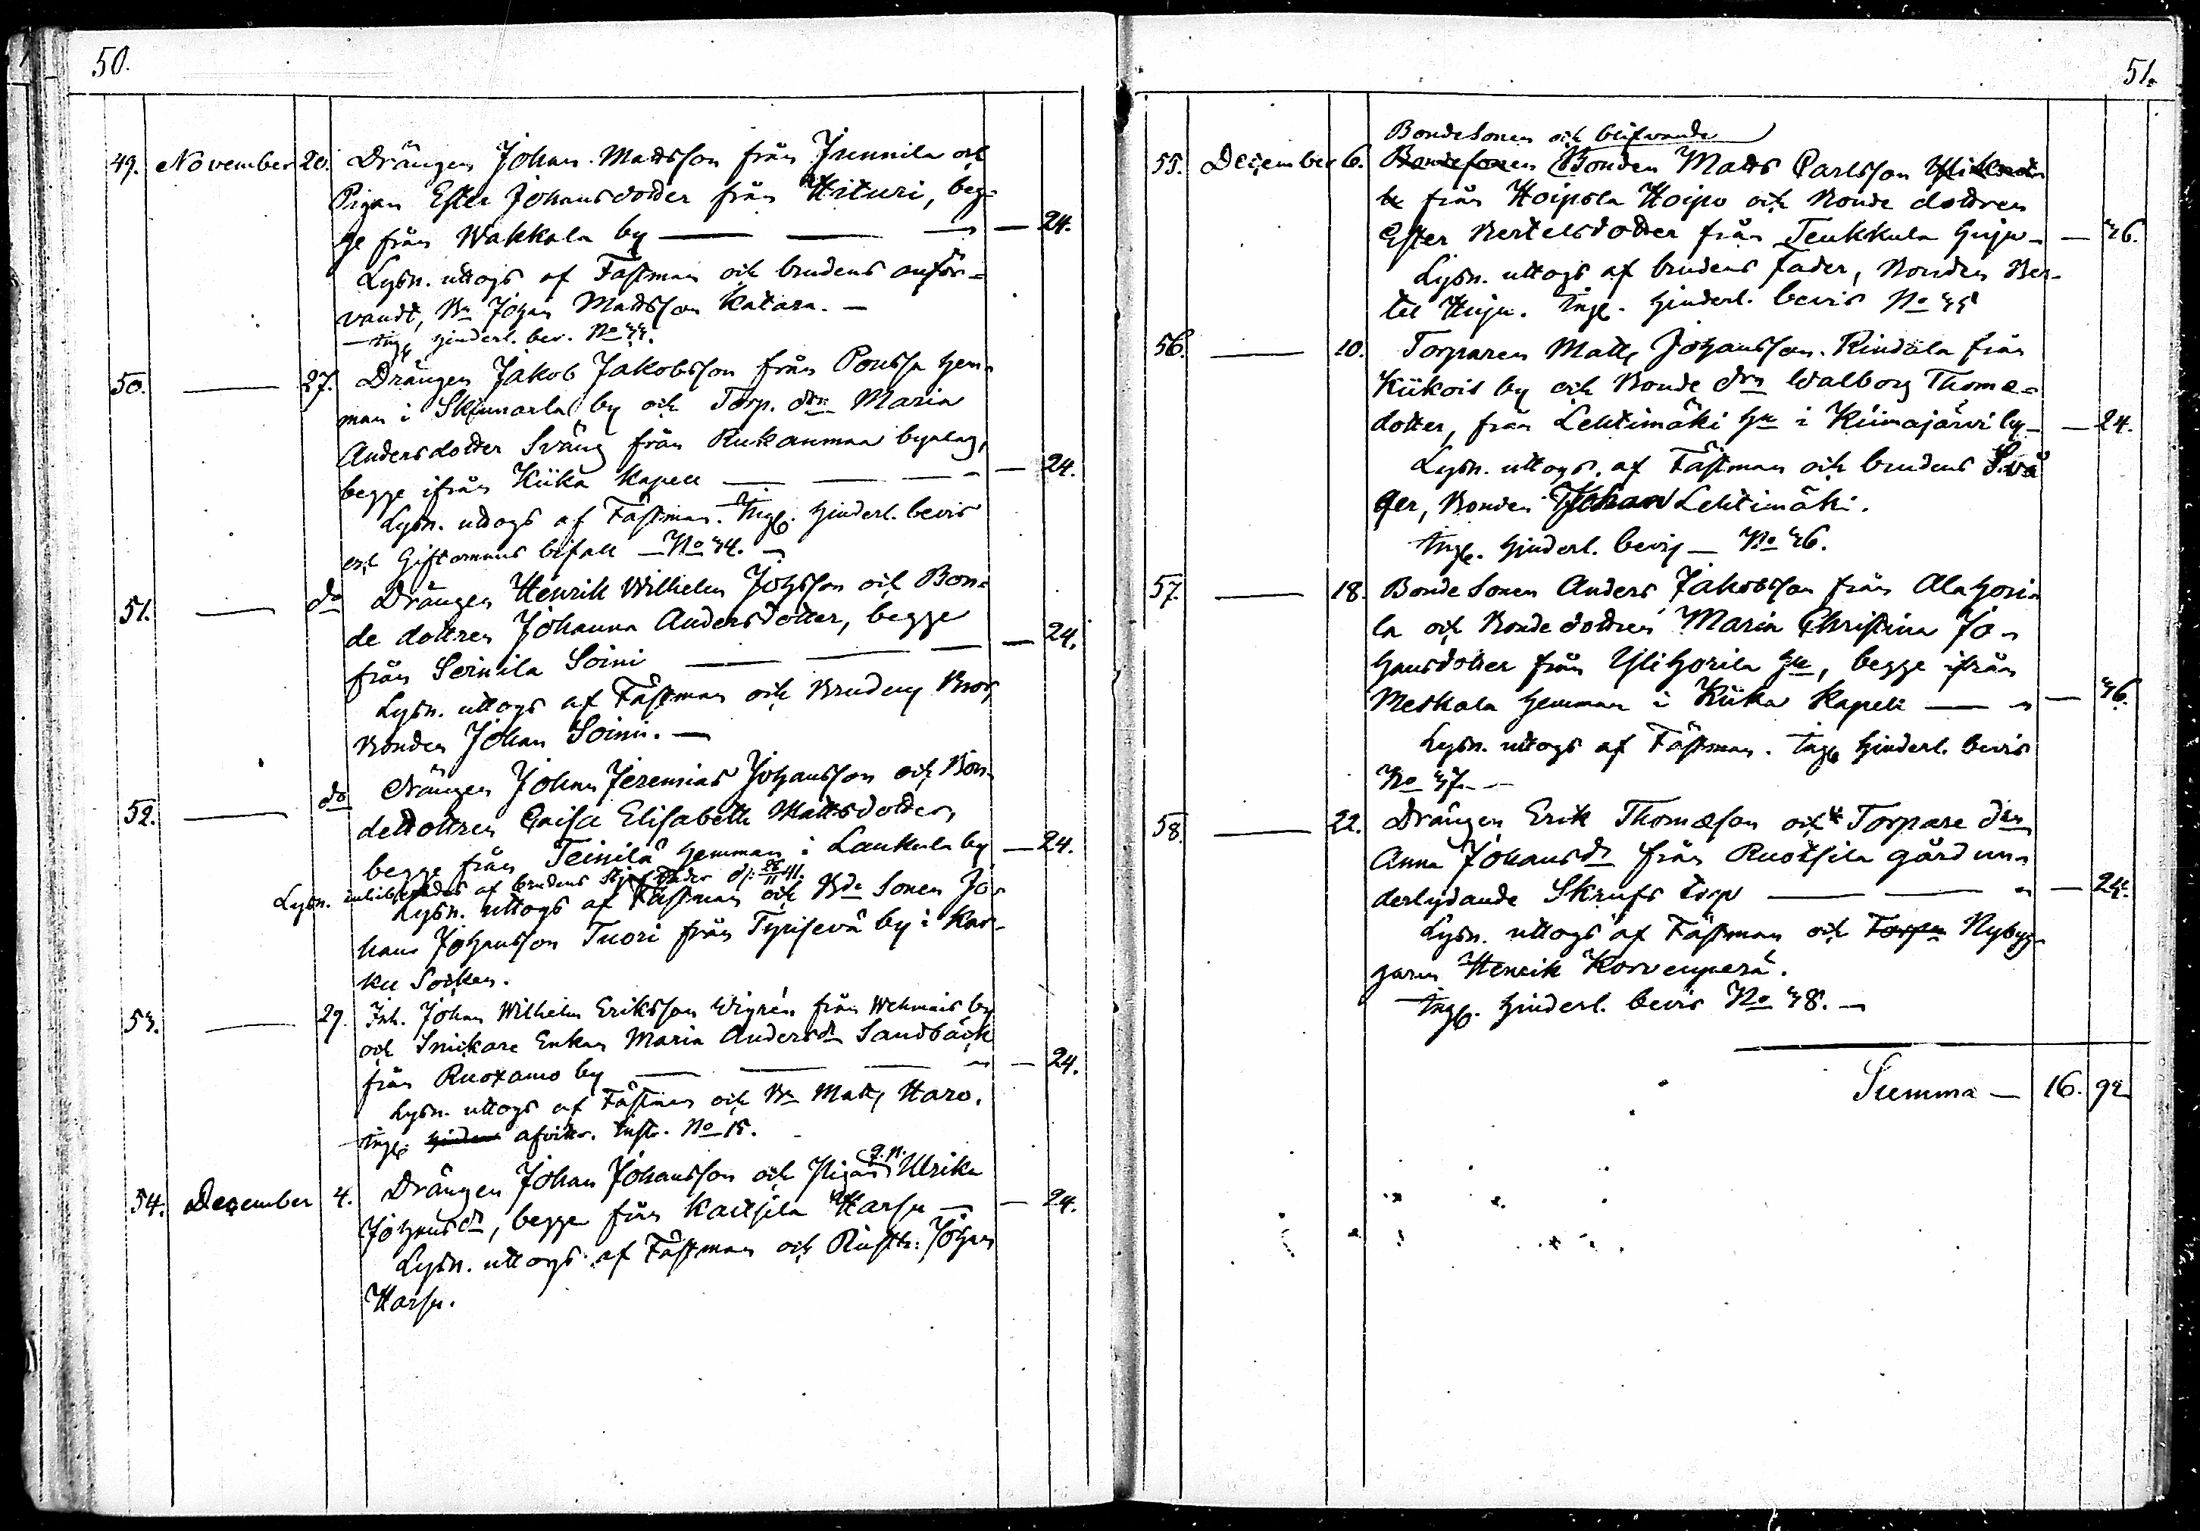 50.
49. November 20. Drängen Johan Mattsson från Junnila och
Pigan Ester Johansdotter från Hituri, beg-
ge från Wakkala by — — — — 24.
Lysn. uttogs af Fästman och brudens anför-
vandt, Bn Johan Mattsson Katara. —
Ingl hinderl. bev. No 43.
50. — 27. Drängen Jakob Jakobsson från Poussa hem-
man i Skinnarla by och Torp. dn Maria
Andersdotter Sväng från Rukanmaa byalag,
begge ifrån Kiika Kapell — — — — 24.
Lysn. uttogs af Fästman. Ingl. hinderl. bevis
och Giftomans bifall — No 44. —
51. — do Drängen Henrik Wilhelm Johsson och Bon-
de dottren Johanna Andersdotter, begge
från Soinila Soini — — — — 24.
Lysn. uttogs af Fästman och Brudens Bror,
Bonden Johan Soini. —
52. — do Drängen Johan Jeremias Johansson och Bon-
dedottren Caisa Elisabeth Mattsdotter,
begge från Teinilä hemman i Laukula by — 24.
Lysn. inhiberades af brudens Styf Fader d. 28/11 41.
Lysn. uttogs af Fästman och Bde Sonen Jo-
han Johansson Tuori från Tyrisevä by i Kar-
ku Socken.
53. — 29. Inh. Johan Wilhelm Eriksson Wigrén från Wehmais by
och Snickare Enkan Maria Andersdr Sandbäck
från Ruoxamo by — — — — 24.
Lysn. uttogs af Fästman och Bn Matts Haro.
Ingl. afvittr. Instr. No 15.
54. December 4. Drängen Johan Johansson och Pigan Ulrika
Johansdr, begge från Kaitsila Harsu — — 24.
Lysn. uttogs af Fästman och Rusth: Johan
Harsu.
51.
Bondesonen och blifvande
55. December 6. Bondesonen Bonden Matts Carlsson
från Hoipola Hoipo och Bonde dottren
Ester Bertelsdotter från Teukkula Huju — — 46.
Lysn. uttogs af brudens fader, Bonden Ber-
tel Huju. Ingl. hinderl. bevis No 45
56. — 10. Torparen Matts Johansson Rindala från
Kiikois by och Bonde drn Walborg Thomæ-
dotter, från Lehtimäki hn i Kiimajärvi by — — 24.
Lysn. uttogs af Fästman och brudens Svå
ger, Bonden Johan Lehtimäki.
Ingl. hinderl. bevis — No 46.
57. — 18. Bonde Sonen Anders Jakobsson från Alahori
la och Bondedottren Maria Christina Jo-
hansdotter från Ylihorila hn, begge ifrån
Meskala hemman i Kiika Kapell — — — 46.
Lysn. uttogs af Fästman. Ingl hinderl. bevis
No 47. —
58. — 22. Drängen Erik Thomæson och Torpare drn
Anna Johansdr från Ruotsila gård un-
derlydande Skrufs torp — — — — 24.
Lysn. uttogs af Fästman och Torpn Nybyg-
garen Henrik Korvenperä.
Ingl. hinderl. bevis No 48. —
Summa — 16. 92